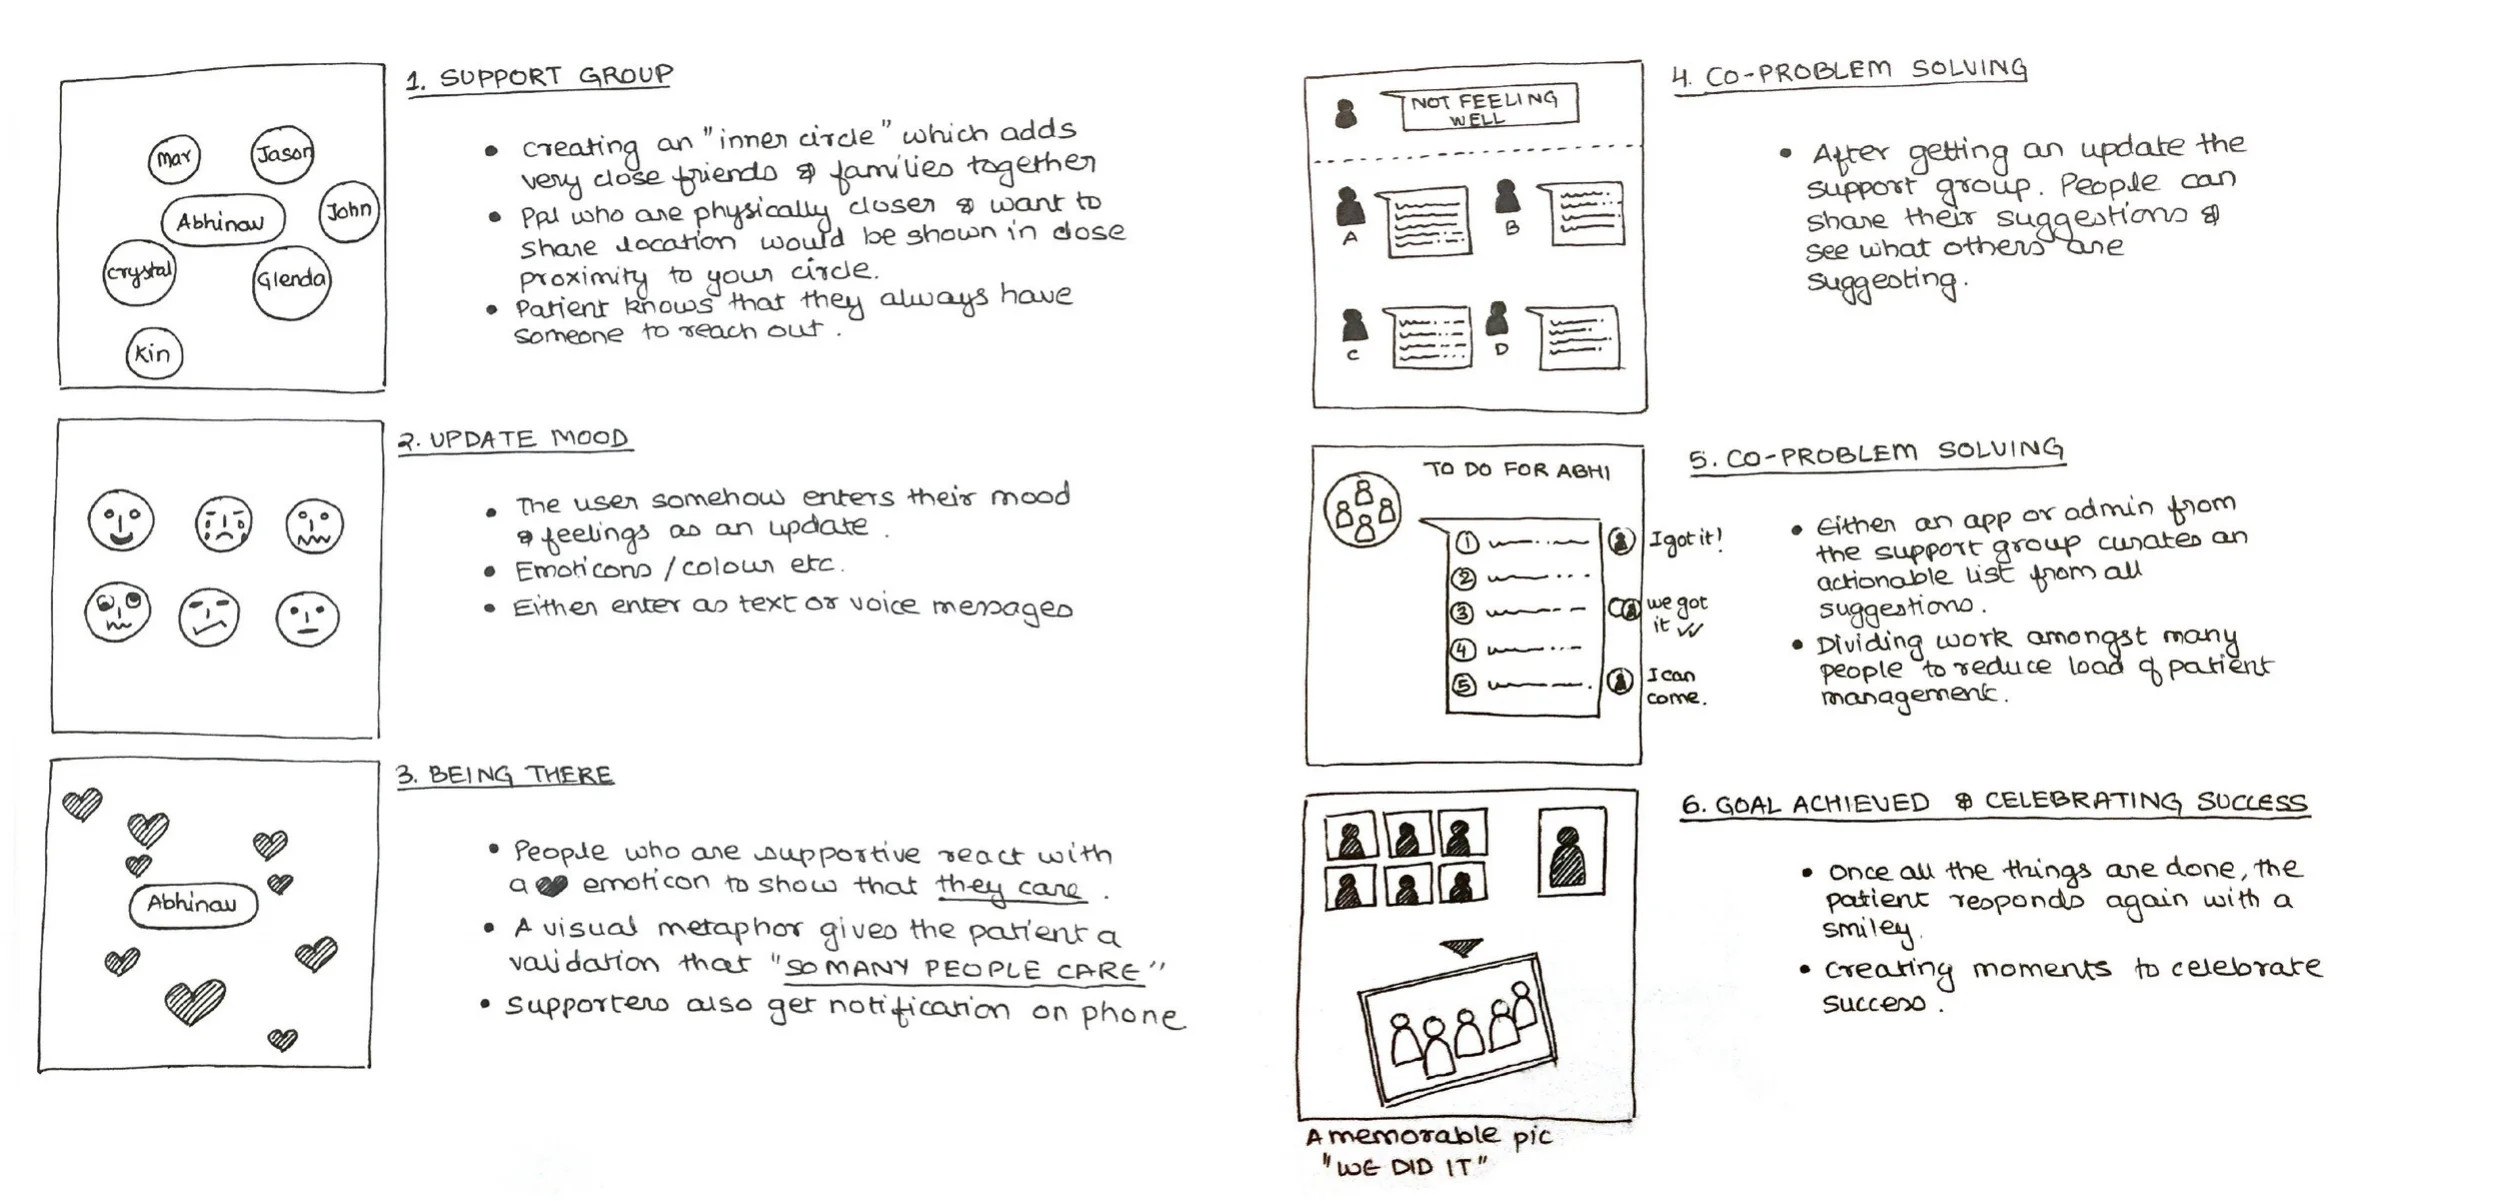 1. SUPPORT GROUP
Mar
Jason
Abhinav
John
Crystal
Glenda
Kin
• Creating an "inner circle" which adds
very close friends & families together
• Ppl who are physically closer & want to
share location would be shown in close
proximity to your circle.
• Patient knows that they always have
someone to reach out.
2. UPDATE MOOD
• The user somehow enters their mood
& feelings as an update.
• Emoticons / colour etc.
• Either enter as text or voice messages
3. BEING THERE
Abhinav
• People who are supportive react with
a ♥ emoticon to show that they care.
• A visual metaphor gives the patient a
validation that "SO MANY PEOPLE CARE"
• Supporters also get notification on phone
4. CO-PROBLEM SOLVING
NOT FEELING
WELL
A
B
C
D
• After getting an update the
support group. People can
share their suggestions &
see what others are
suggesting.
5. CO-PROBLEM SOLVING
TO DO FOR ABHI
1
I got it!
2
3
we got
it
4
5
I can
come.
• Either an app or admin from
the support group curates an
actionable list from all
suggestions.
• Dividing work amongst many
people to reduce load of patient
management.
6. GOAL ACHIEVED & CELEBRATING SUCCESS
• Once all the things are done, the
patient responds again with a
smiley.
• Creating moments to celebrate
success.
A memorable pic
"WE DID IT"